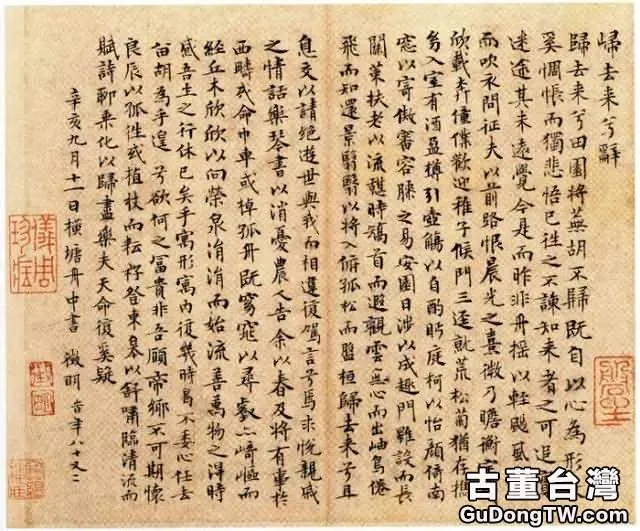 歸去来兮辭
歸去来兮田園将蕪胡不歸既自以心為形
奚惆悵而獨悲悟已往之不諫知来者之可追
迷途其未遠覺今是而昨非舟摇以輕颺風
而吹衣問征夫以前路恨晨光之熹微乃瞻衡
欣載奔僮僕歡迎稚子候門三逕就荒松菊猶存携
幼入室有酒盈樽引壺觴以自酌眄庭柯以怡顏倚南
窓以寄傲審容膝之易安園日涉以成趣門雖設而長
關策扶老以流憩時矯首而遐觀雲無心而出岫鳥倦
飛而知還景翳翳以将入撫孤松而盤桓歸去来兮且
息交以請絶遊世與我而相違復駕言兮焉求悅親戚
之情話樂琴書以消憂農人告余以春及将有事於
西疇或命巾車或棹孤舟既窈窕以尋壑亦崎嶇而
經丘木欣欣以向榮泉涓涓而始流善萬物之得時
感吾生之行休已矣乎寓形寓内復幾時曷不委心任去
留胡為乎遑遑兮欲何之冨貴非吾願帝鄉不可期懷
良辰以孤往或植杖而耘耔登東皋以舒嘯臨清流而
賦詩聊乗化以歸盡樂夫天命復奚疑
辛亥九月十一日横塘舟中書 徵明 時年八十又二
古董台灣
GuDongTW.com